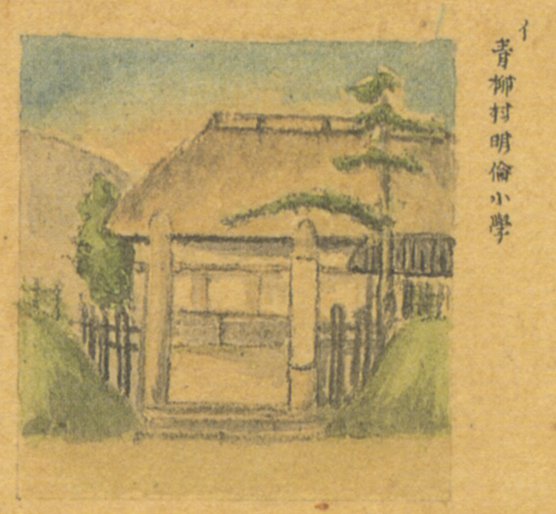 イ
青柳村明倫小學